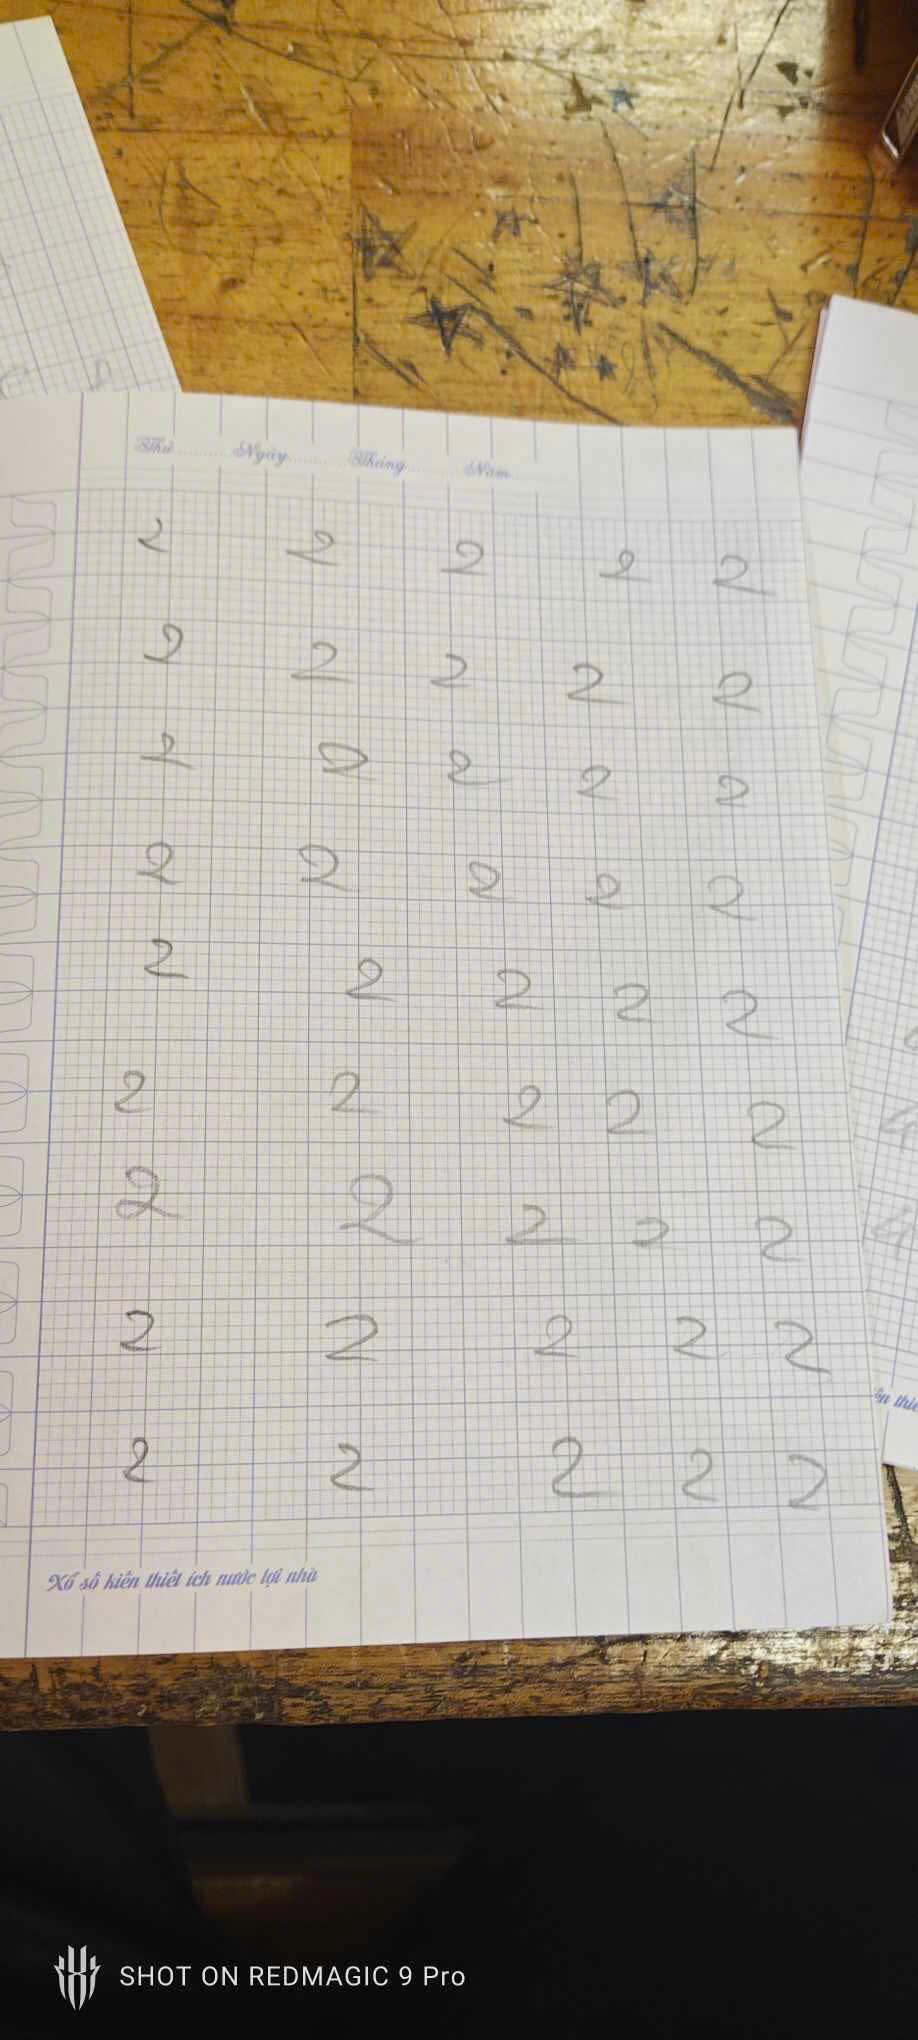 Thứ........Ngày........Tháng........Năm........
2 2 2 2 2
2 2 2 2 2
2 2 2 2 2
2 2 2 2 2
2 2 2 2 2
2 2 2 2 2
2 2 2 2 2
2 2 2 2 2
2 2 2 2 2
Xổ số kiến thiết ích nước lợi nhà
4
4
ến thiế
SHOT ON REDMAGIC 9 Pro